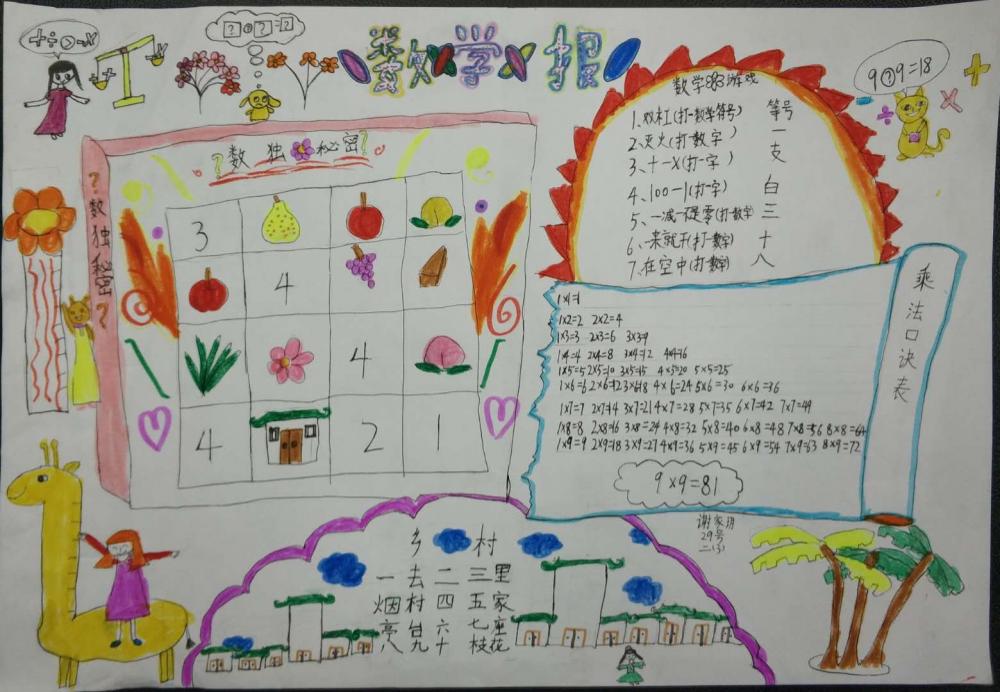 +÷>-×
?○?=?
数学报
9?9=18
数学游戏
1、双杠(打一数学符号) 等号
2、灭火(打一数字) 一
3、十一x(打一字) 支
4、100一1(打一字) 白
5、一减一不是零(打一数字 三
6、一来就开(打一数字) 十
7、在空中(打一数字) 八
?数独秘密?
?数独秘密?
3
4
4
4 2 1
乘法口诀表
1×1=1
1×2=2 2×2=4
1×3=3 2×3=6 3×3=9
1×4=4 2×4=8 3×4=12 4×4=16
1×5=5 2×5=10 3×5=15 4×5=20 5×5=25
1×6=6 2×6=12 3×6=18 4×6=24 5×6=30 6×6=36
1×7=7 2×7=14 3×7=21 4×7=28 5×7=35 6×7=42 7×7=49
1×8=8 2×8=16 3×8=24 4×8=32 5×8=40 6×8=48 7×8=56 8×8=64
1×9=9 2×9=18 3×9=27 4×9=36 5×9=45 6×9=54 7×9=63 8×9=72
9×9=81
谢家
29号
二(3)
乡村
一去二三里
烟村四五家
亭台六七座
八九十枝花